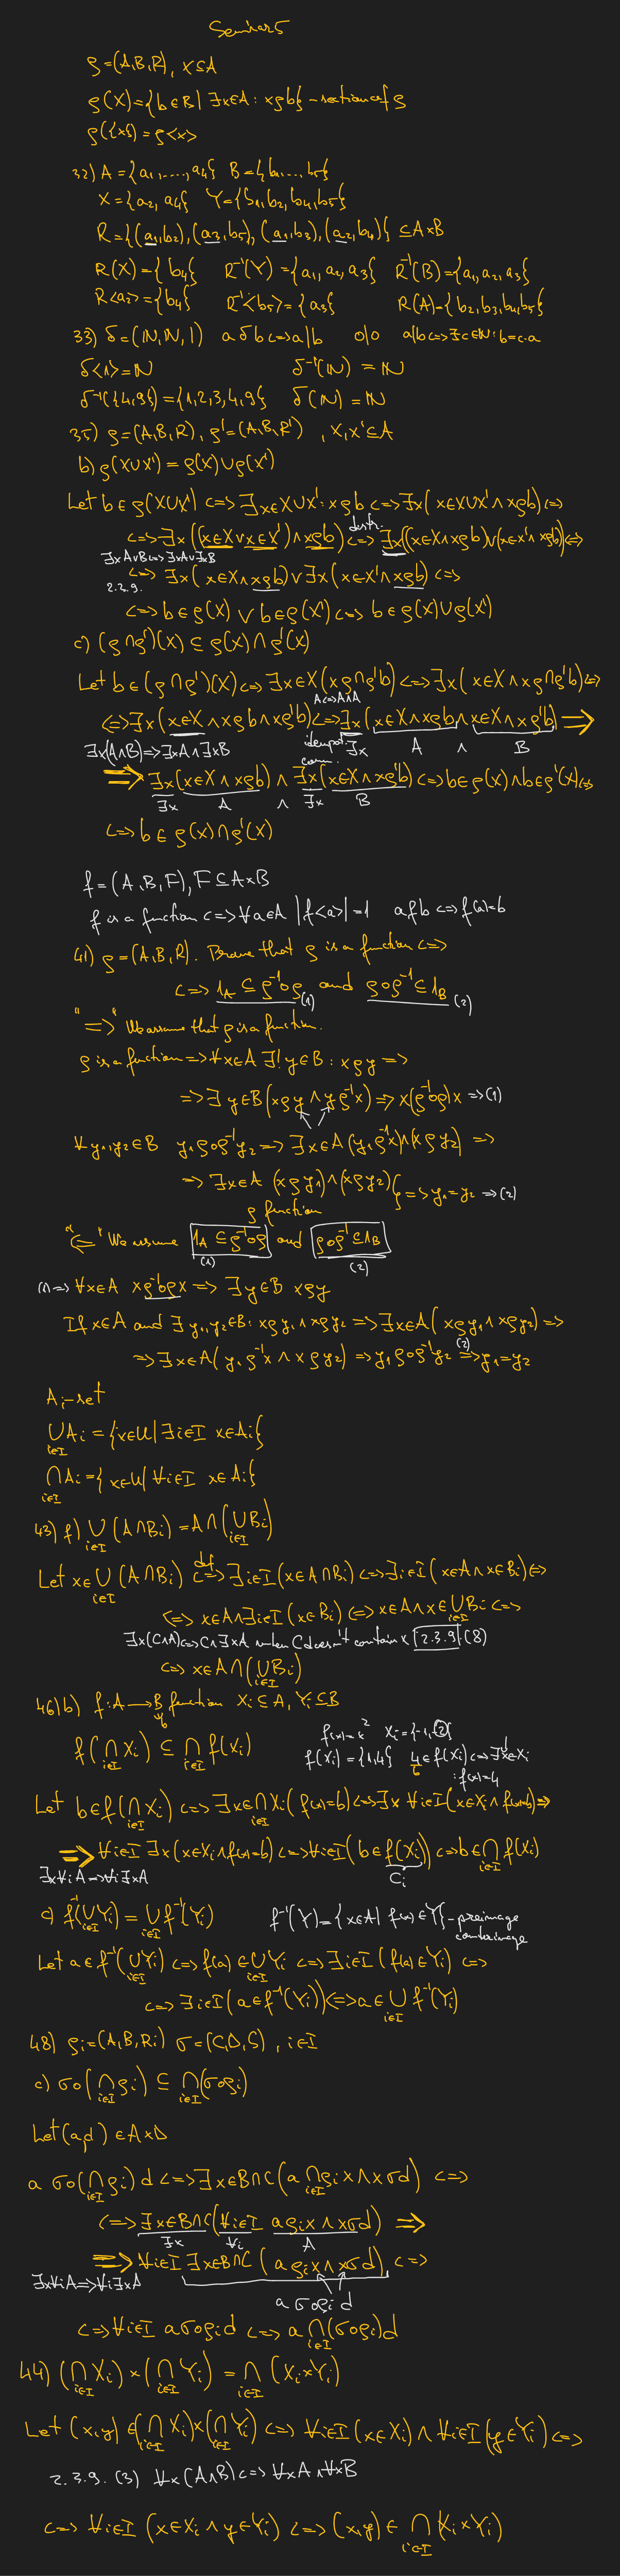 Seminar 5
ρ=(A,B,R), X⊆A
ρ(X)={b∈B| ∃x∈A: xρb} - section of ρ
ρ({x})=ρ<x>
32) A={a₁,...,a₄} B={b₁,...,b₅}
X={a₂, a₄} Y={b₁,b₂,b₄,b₅}
R={(a₁,b₂),(a₃,b₅),(a₁,b₃),(a₂,b₄)} ⊆A×B
R(X)={b₄} R⁻¹(Y)={a₁,a₂,a₃} R⁻¹(B)={a₁,a₂,a₃}
R<a₂>={b₄} R⁻¹<b₅>={a₃} R(A)={b₂,b₃,b₄,b₅}
33) δ=(ℕ,ℕ,|) a δ b <=> a|b 0|0 a|b<=>∃c∈ℕ: b=c·a
δ<1>=ℕ δ⁻¹(ℕ) = ℕ
δ⁻¹({4,9})={1,2,3,4,9} δ(ℕ) = ℕ
35) ρ=(A,B,R), ρ'=(A,B,R'), X,X'⊆A
b) ρ(X∪X') = ρ(X)∪ρ(X')
Let b∈ρ(X∪X') <=> ∃x∈X∪X': xρb <=> ∃x(x∈X∪X' ∧ xρb) <=>
<=> ∃x((x∈X∨x∈X')∧xρb) distr. <=> ∃x((x∈X∧xρb)∨(x∈X'∧xρb)) <=>
∃xA∨B<=>∃xA∨∃xB
<=> ∃x(x∈X∧xρb)∨∃x(x∈X'∧xρb) <=>
2.3.9.
<=> b∈ρ(X) ∨ b∈ρ(X') <=> b∈ρ(X)∪ρ(X')
c) (ρ∩ρ')(X) ⊆ ρ(X)∩ρ'(X)
Let b∈(ρ∩ρ')(X) <=> ∃x∈X(xρ∩ρ'b) <=> ∃x(x∈X∧xρ∩ρ'b) <=>
A<=>A∧A
<=> ∃x(x∈X∧xρb∧xρ'b) <=> ∃x(x∈X∧xρb∧x∈X∧xρ'b) =>
∃x(A∧B)=>∃xA∧∃xB idempot. com. ∃x A ∧ B
=> ∃x(x∈X∧xρb) ∧ ∃x(x∈X∧xρ'b) <=> b∈ρ(X)∧b∈ρ'(X) <=>
∃x A ∧ ∃x B
<=> b∈ρ(X)∩ρ'(X)
f=(A,B,F), F⊆A×B
f is a function <=> ∀a∈A |f<a>|=1 afb <=> f(a)=b
41) ρ=(A,B,R). Prove that ρ is a function <=>
<=> 1_A ⊆ ρ⁻¹∘ρ (1) and ρ∘ρ⁻¹ ⊆ 1_B (2)
"=>" We assume that ρ is a function.
ρ is a function => ∀x∈A ∃!y∈B: xρy =>
=> ∃y∈B(xρy ∧ yρ⁻¹x) => x(ρ⁻¹∘ρ)x => (1)
∀y₁,y₂∈B y₁ρ∘ρ⁻¹y₂ => ∃x∈A(y₁ρ⁻¹x)∧(xρy₂) =>
=> ∃x∈A (xρy₁)∧(xρy₂) } => y₁=y₂ => (2)
ρ function
"<=" We assume 1_A ⊆ ρ⁻¹∘ρ and ρ∘ρ⁻¹ ⊆ 1_B
(1) (2)
(1) => ∀x∈A xρ⁻¹∘ρx => ∃y∈B xρy
If x∈A and ∃y₁,y₂∈B: xρy₁∧xρy₂ => ∃x∈A(xρy₁∧xρy₂) =>
=> ∃x∈A(y₁ρ⁻¹x ∧ xρy₂) => y₁ρ∘ρ⁻¹y₂ (2) => y₁=y₂
Aᵢ-set
⋃ᵢ∈I Aᵢ = {x∈U| ∃i∈I x∈Aᵢ}
⋂ᵢ∈I Aᵢ = {x∈U| ∀i∈I x∈Aᵢ}
43) f) ⋃ᵢ∈I (A∩Bᵢ) = A∩(⋃ᵢ∈I Bᵢ)
Let x∈⋃ᵢ∈I (A∩Bᵢ) def <=> ∃i∈I(x∈A∩Bᵢ) <=> ∃i∈I(x∈A∧x∈Bᵢ) <=>
<=> x∈A∧∃i∈I(x∈Bᵢ) <=> x∈A∧x∈⋃ᵢ∈I Bᵢ <=>
∃x(C∧A)<=>C∧∃xA when C doesn't contain x 2.3.9.(8)
<=> x∈A∩(⋃ᵢ∈I Bᵢ)
46) b) f:A→B function Xᵢ⊆A, Yᵢ⊆B
f(x)=x² Xᵢ={-1,2}
f(⋂ᵢ∈I Xᵢ) ⊆ ⋂ᵢ∈I f(Xᵢ) f(Xᵢ)={1,4} 4∈f(Xᵢ) <=> ∃x∈Xᵢ
b : f(x)=4
Let b∈f(⋂ᵢ∈I Xᵢ) <=> ∃x∈⋂ᵢ∈I Xᵢ(f(x)=b) <=> ∃x ∀i∈I(x∈Xᵢ∧f(x)=b) =>
=> ∀i∈I ∃x(x∈Xᵢ∧f(x)=b) <=> ∀i∈I(b∈f(Xᵢ)) <=> b∈⋂ᵢ∈I f(Xᵢ)
∃x∀iA=>∀i∃xA Cᵢ
c) f⁻¹(⋃ᵢ∈I Yᵢ) = ⋃ᵢ∈I f⁻¹(Yᵢ) f⁻¹(Y)={x∈A| f(x)∈Y} - preimage
counterimage
Let a∈f⁻¹(⋃ᵢ∈I Yᵢ) <=> f(a)∈⋃ᵢ∈I Yᵢ <=> ∃i∈I(f(a)∈Yᵢ) <=>
<=> ∃i∈I(a∈f⁻¹(Yᵢ)) <=> a∈⋃ᵢ∈I f⁻¹(Yᵢ)
48) ρᵢ=(A,B,Rᵢ) σ=(C,D,S), i∈I
c) σ∘(⋂ᵢ∈I ρᵢ) ⊆ ⋂ᵢ∈I (σ∘ρᵢ)
Let (a,d)∈A×D
a σ∘(⋂ᵢ∈I ρᵢ) d <=> ∃x∈B∩C(a ⋂ᵢ∈I ρᵢ x ∧ xσd) <=>
<=> ∃x∈B∩C(∀i∈I aρᵢx ∧ xσd) =>
∃x ∀i A
=> ∀i∈I ∃x∈B∩C (aρᵢx ∧ xσd) <=>
∃x∀iA=>∀i∃xA a σ∘ρᵢ d
<=> ∀i∈I aσ∘ρᵢd <=> a ⋂ᵢ∈I (σ∘ρᵢ)d
44) (⋂ᵢ∈I Xᵢ)×(⋂ᵢ∈I Yᵢ) = ⋂ᵢ∈I (Xᵢ×Yᵢ)
Let (x,y)∈(⋂ᵢ∈I Xᵢ)×(⋂ᵢ∈I Yᵢ) <=> ∀i∈I(x∈Xᵢ) ∧ ∀i∈I(y∈Yᵢ) <=>
2.3.9.(3) ∀x(A∧B)<=>∀xA∧∀xB
<=> ∀i∈I (x∈Xᵢ∧y∈Yᵢ) <=> (x,y)∈⋂ᵢ∈I (Xᵢ×Yᵢ)